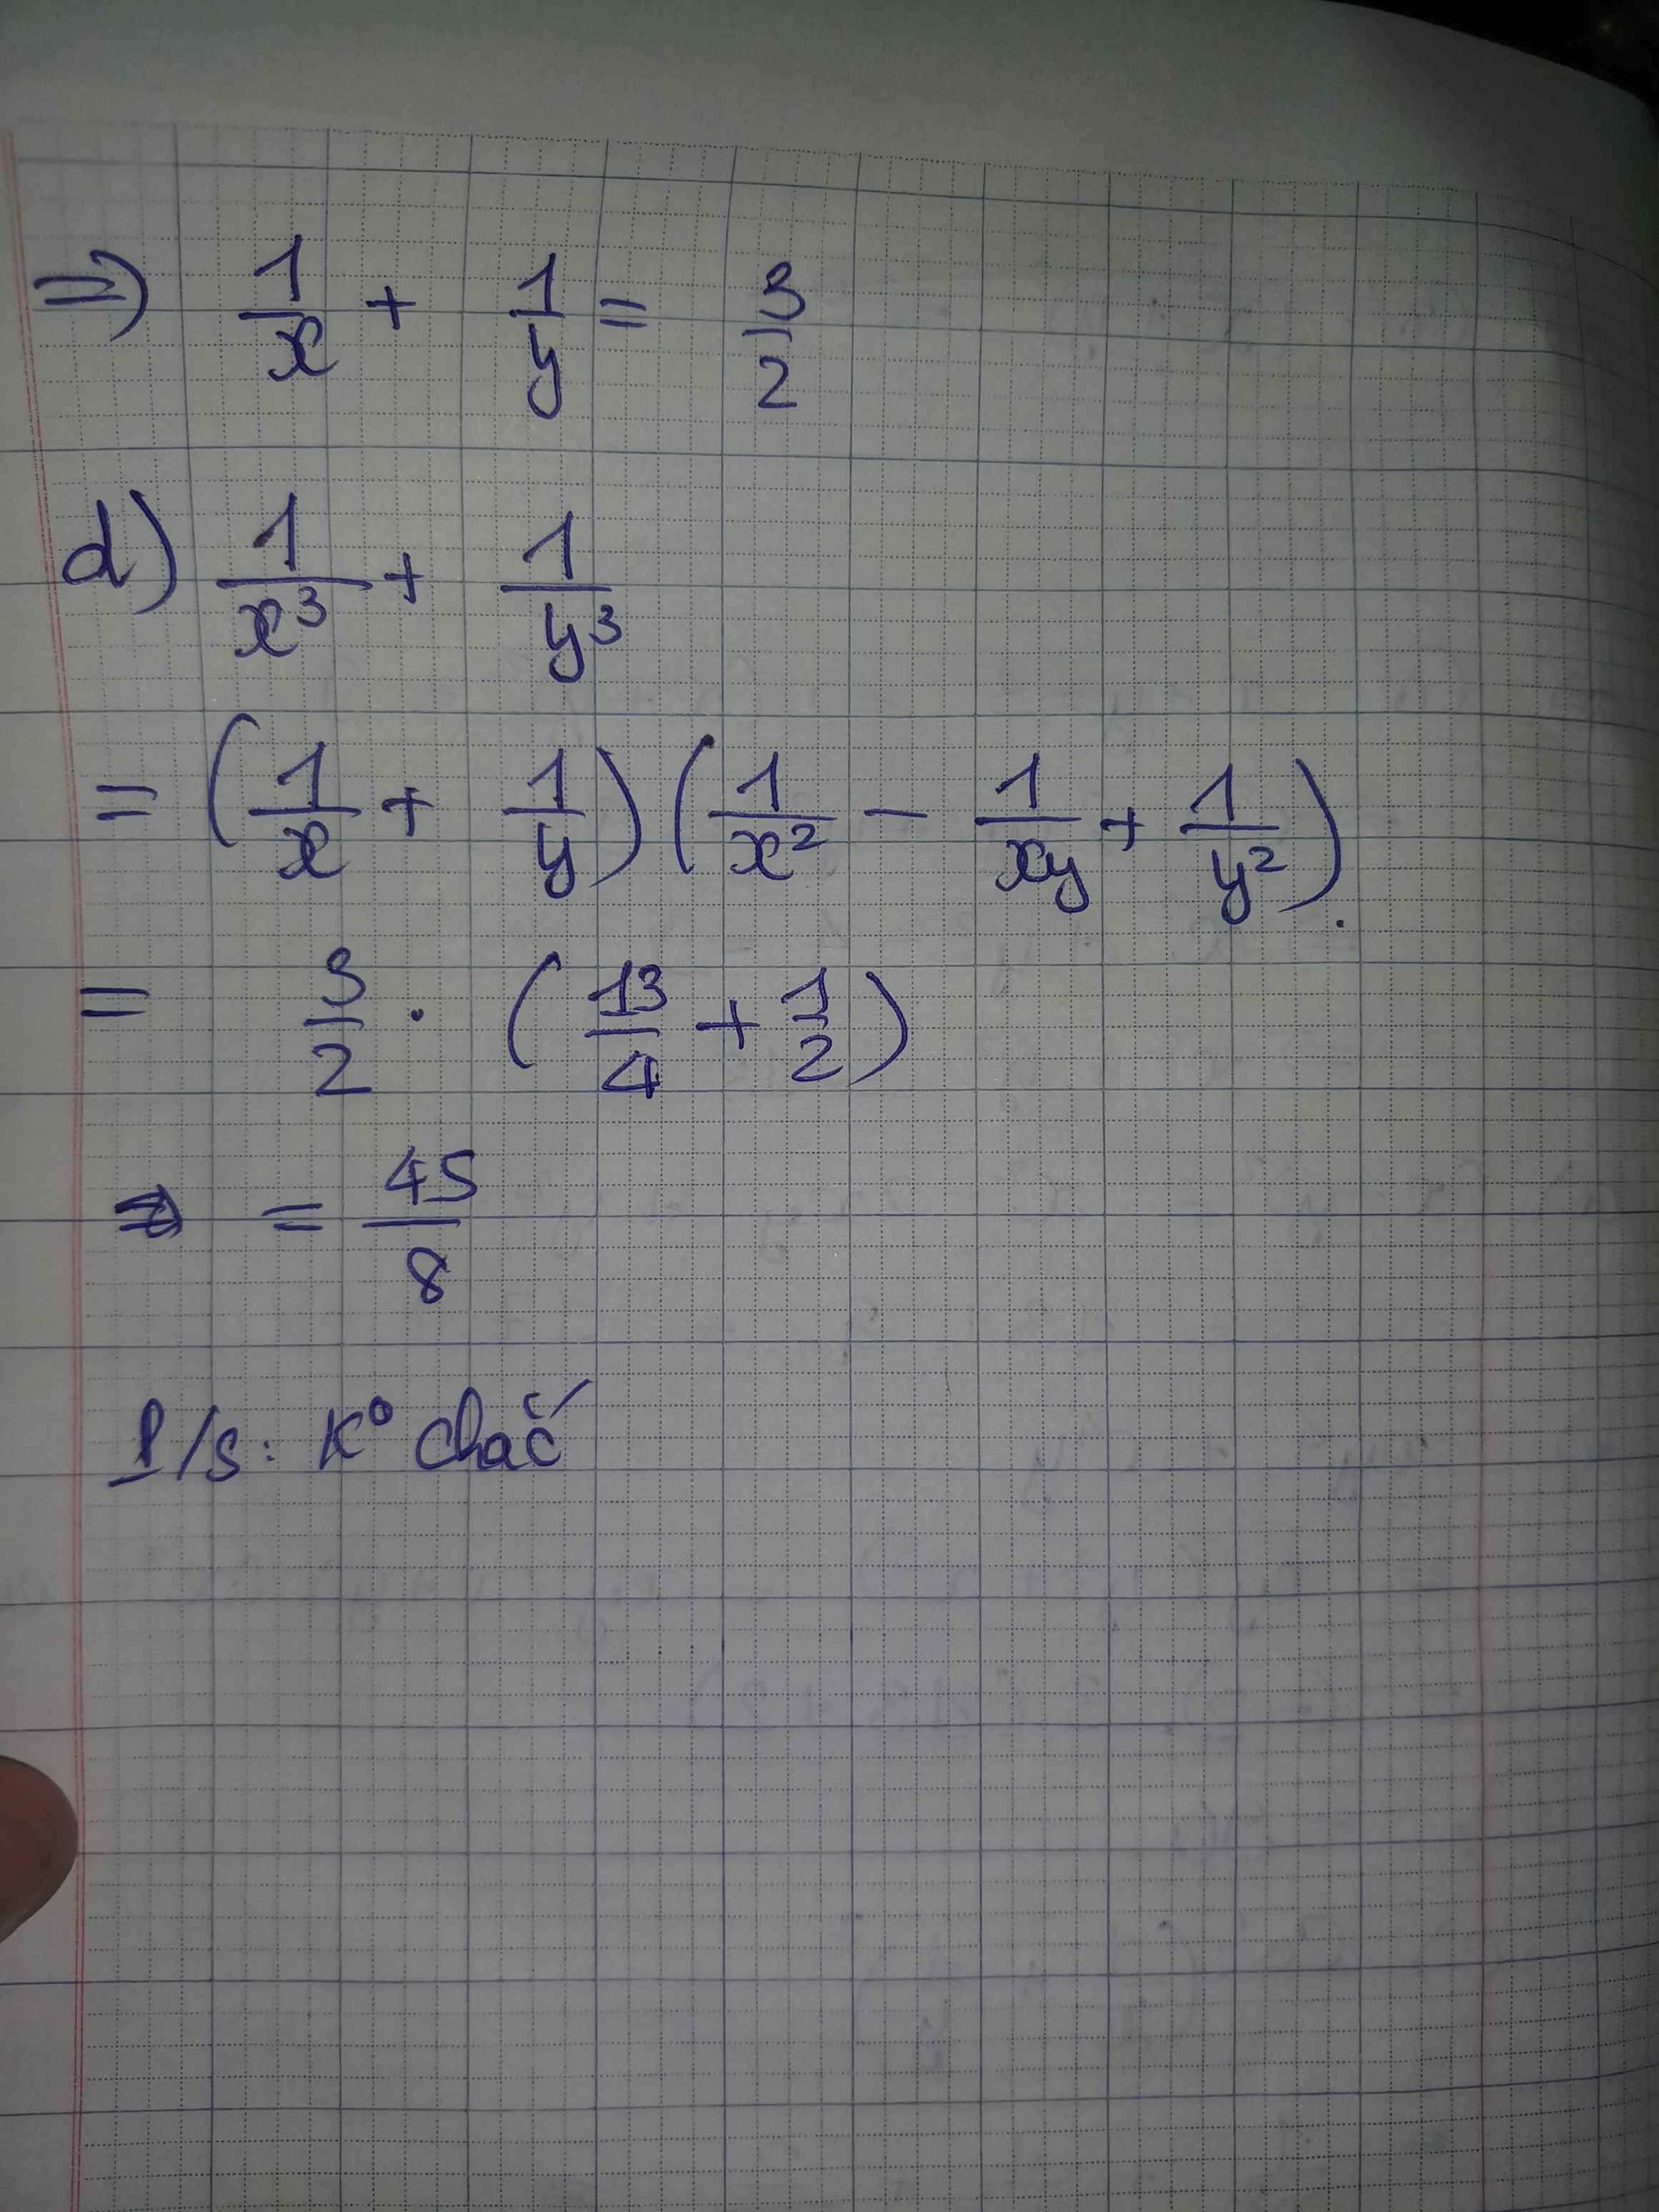 ⇒) 1/x + 1/y = 3/2
d) 1/x³ + 1/y³
= (1/x + 1/y)(1/x² - 1/xy + 1/y²).
= 3/2 · (13/4 + 1/2)
⇒ = 45/8
P/S: K° chắc